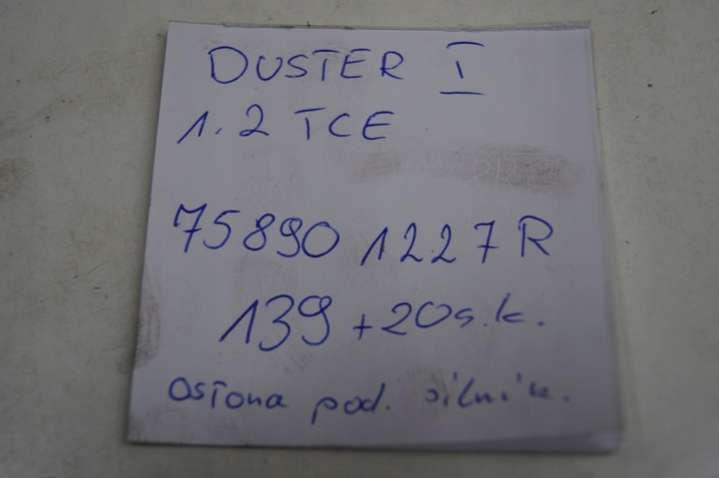 DUSTER I
1.2 TCE
75890 1227R
139 + 20 s.k.
osłona pod. silnik.